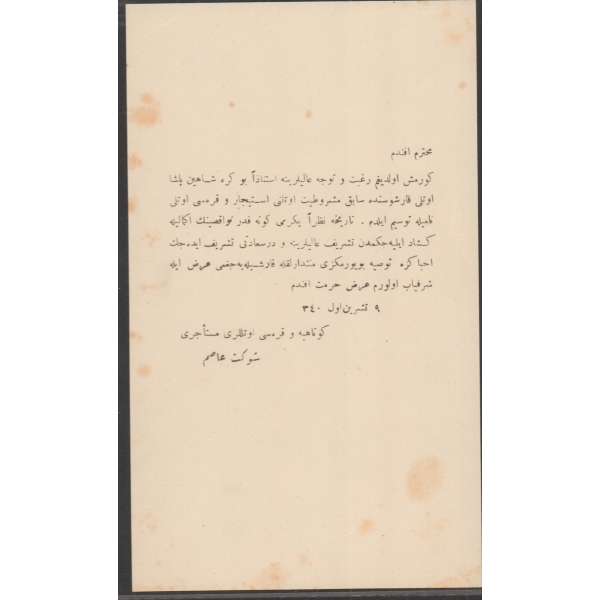 محترم افندم
كورمش اولديغم رغبت و توجه عاليلرينه استناداً بو كره شاهين پاشا
اوتلی قارشوسنده سابق مشروطيت اوتلنی استيجار و قره‌سی اوتلی
ناميله توسيم ايلدم . تاريخه نظراً يكرمی كونه قدر نواقصينك اكماليله
كشاد ايليه‌جكمدن تشريف عاليلرينه و درسعادتی تشريف ايده‌جك
احباكزه توصيه بويورمكزی منتدارلقله قارشيليه‌جغمی عرض ايله
شرفياب اولورم عرض حرمت افندم
٩ تشرين اول ٣٤٠
كوتاهيه و قره‌سی اوتللری مستأجری
شوكت عاصم